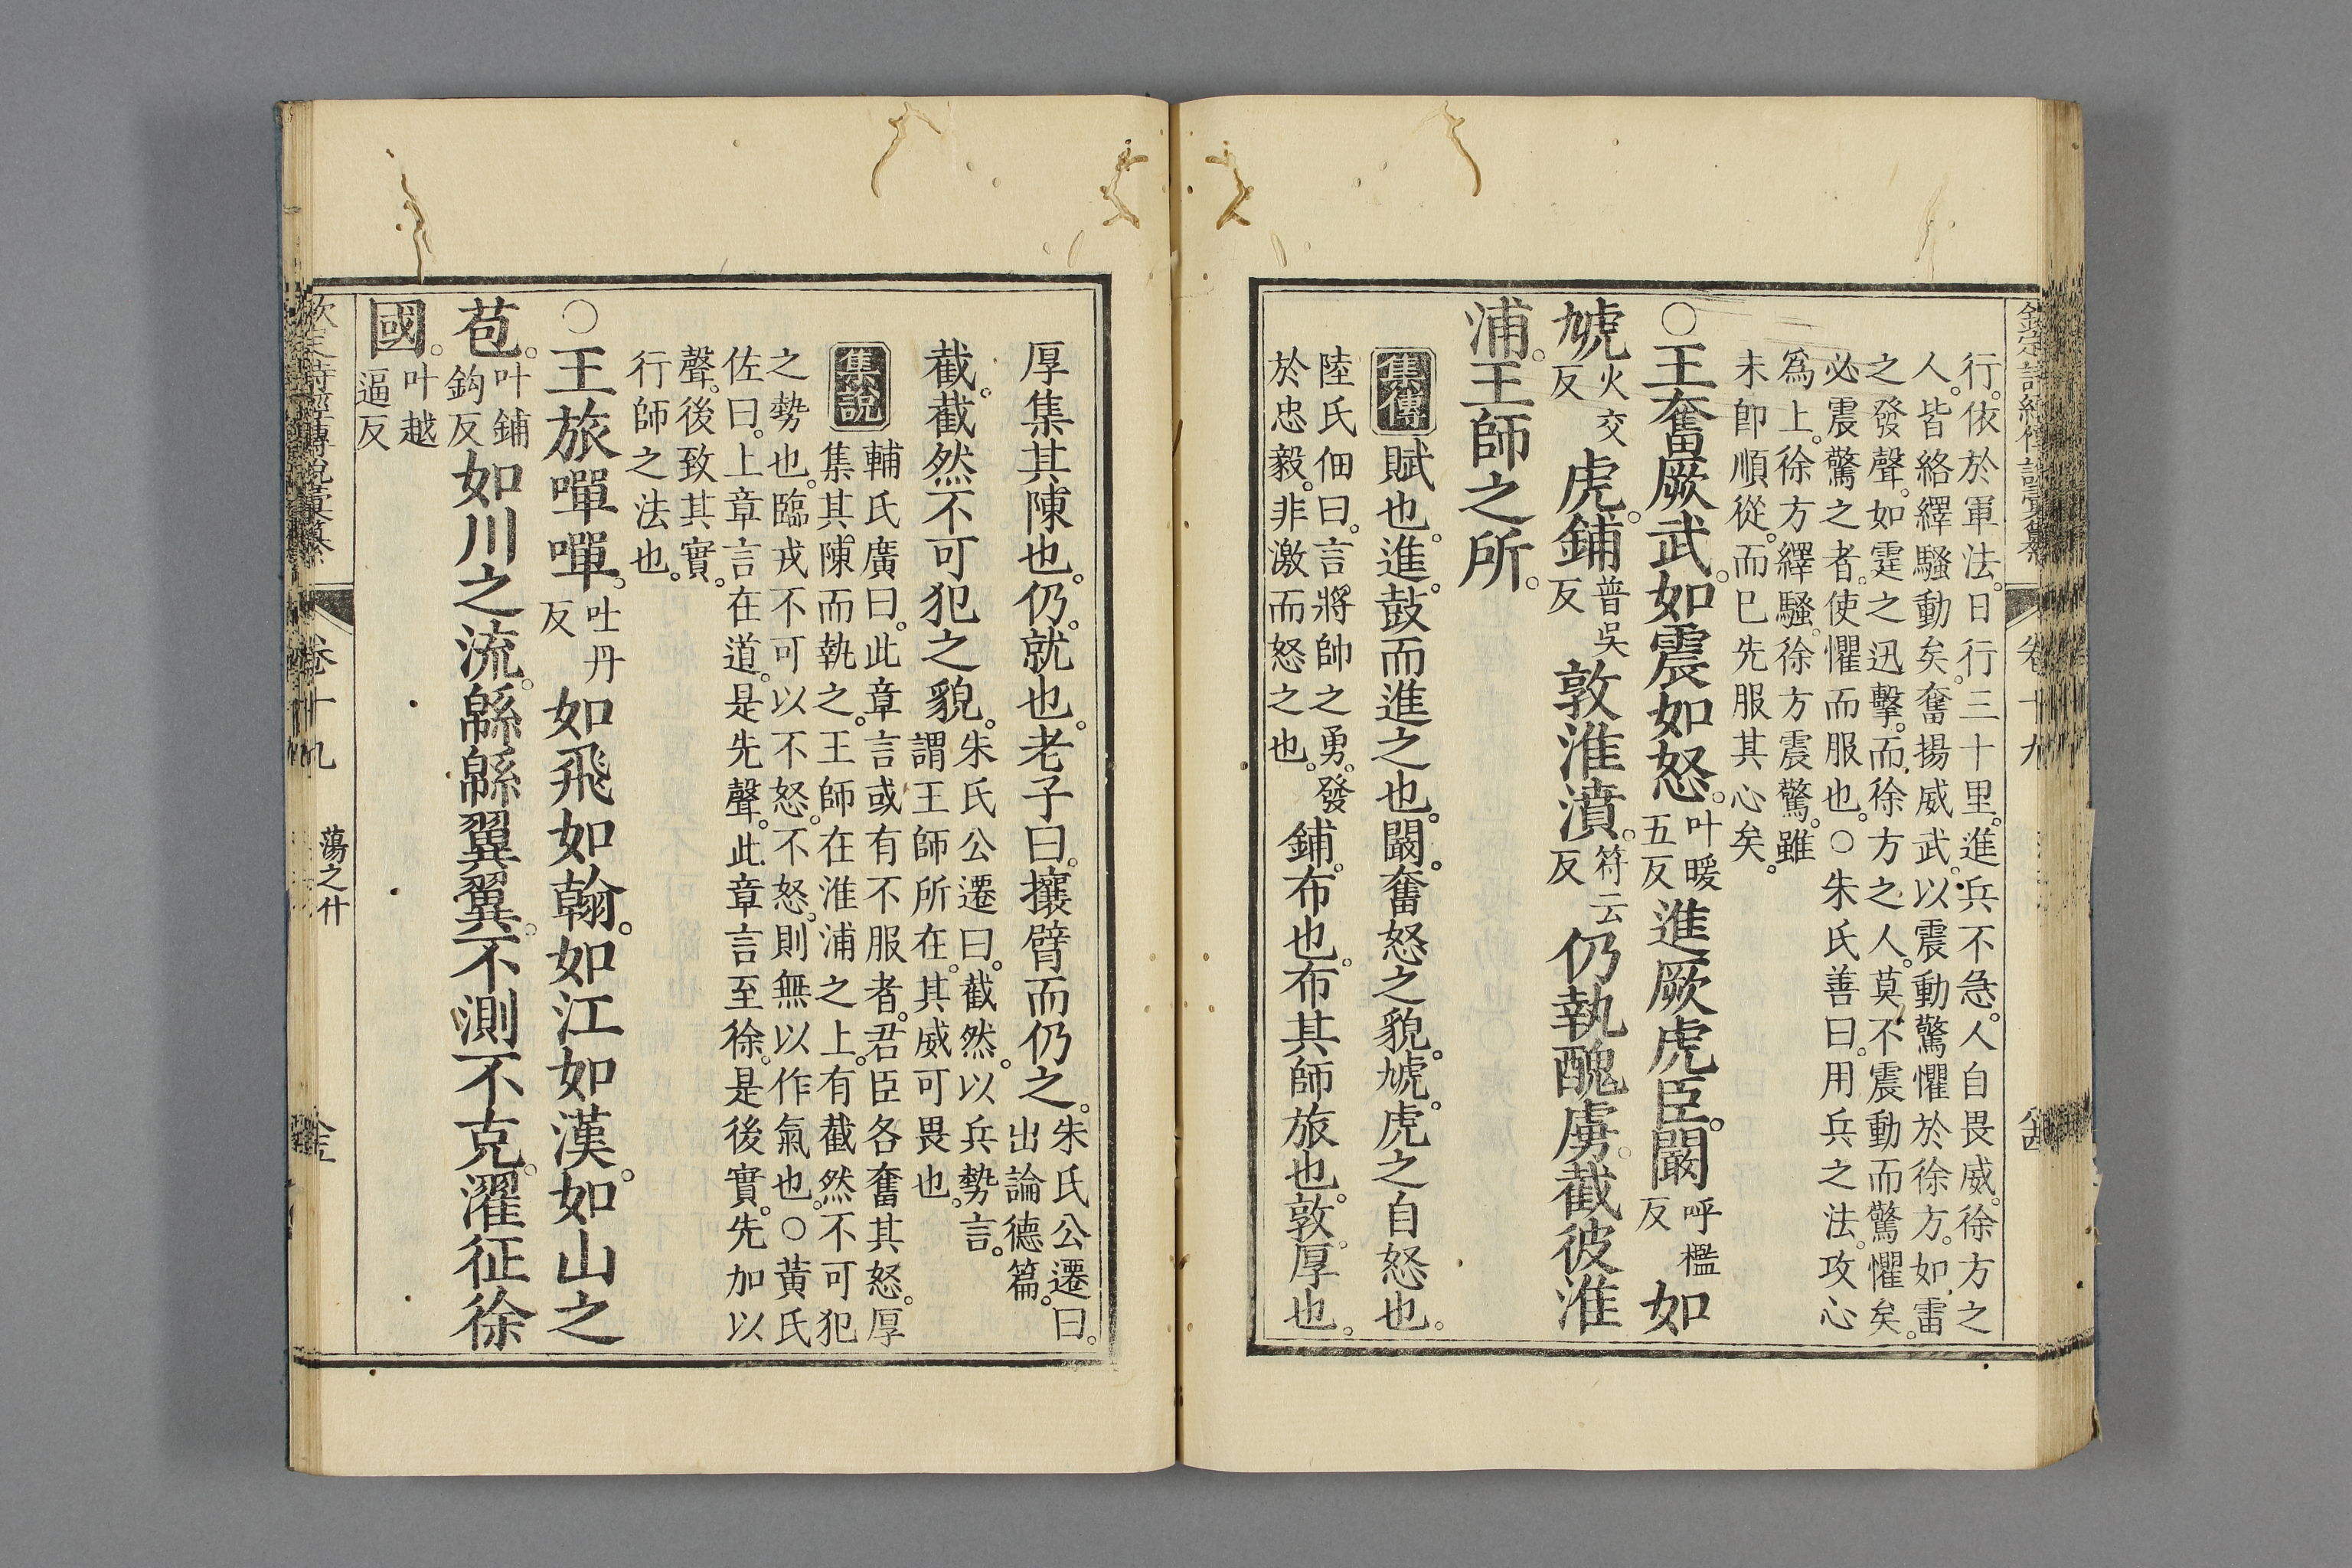 行。依於軍法。日行三十里。進兵不急。人自畏威。徐方之
人。皆絡繹騷動矣。奮揚威武。以震動驚懼於徐方。如雷
之發聲。如霆之迅擊。而徐方之人。莫不震動而驚懼矣。
必震驚之者。使懼而服也。○朱氏善曰。用兵之法。攻心
爲上。徐方繹騷。徐方震驚。雖
未卽順從。而巳先服其心矣。
○王奮厥武。如震如怒。叶暖五反進厥虎臣。闞呼檻反如
虓火交反虎。鋪普吳反敦淮濆。符云反仍執醜虜。截彼淮
浦。王師之所。
集傳賦也。進。鼓而進之也。闞。奮怒之貌。虓。虎之自怒也。
陸氏佃曰。言將帥之勇。發
於忠毅。非激而怒之也。
鋪。布也。布其師旅也。敦。厚也。
厚集其陳也。仍。就也。老子曰。攘臂而仍之。朱氏公遷曰。出論德篇。
截。截然不可犯之貌。朱氏公遷曰。截然。以兵勢言。
謂王師所在。其威可畏也。
集說輔氏廣曰。此章言或有不服者。君臣各奮其怒。厚
集其陳而執之。王師在淮浦之上。有截然不可犯
之勢也。臨戎不可以不怒。不怒。則無以作氣也。○黃氏
佐曰。上章言在道。是先聲。此章言至徐。是後實。先加以
聲。後致其實。
行師之法也。
○王旅嘽嘽。吐丹反如飛如翰。如江如漢。如山之
苞。叶鋪鈎反如川之流。緜緜翼翼。不測不克。濯征徐
國。叶越逼反
卷十九 蕩之什